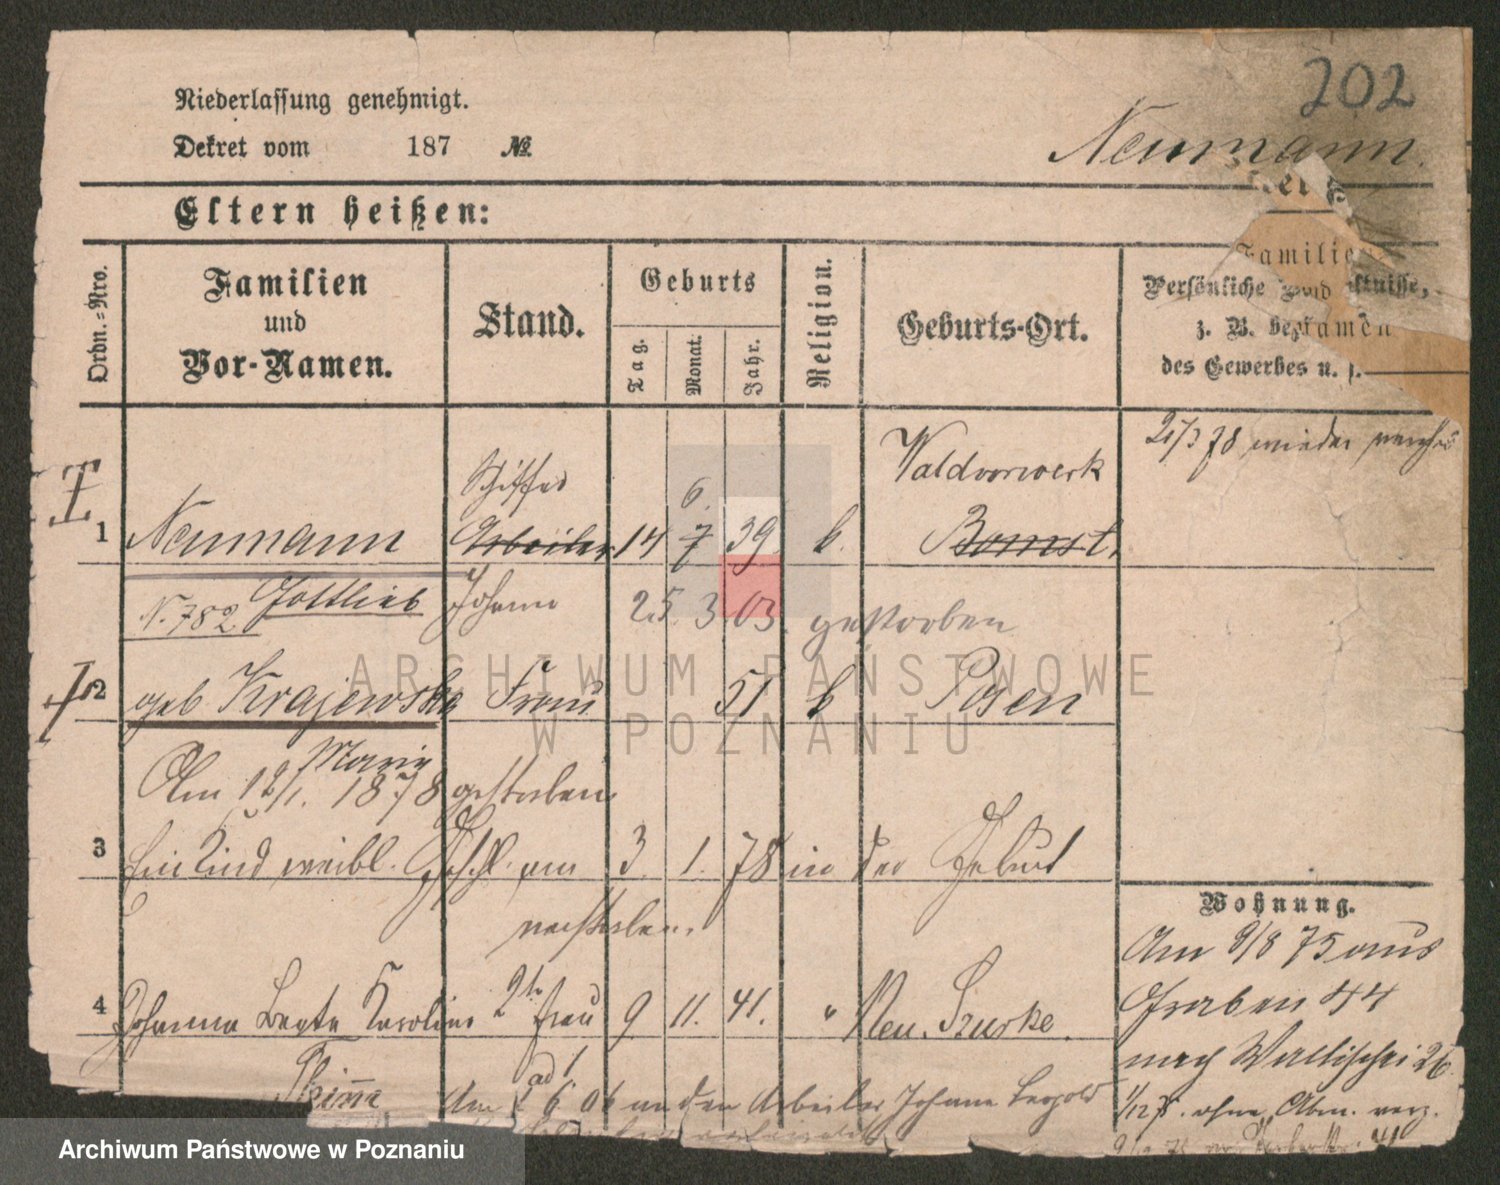 202
Niederlassung genehmigt.
Dekret vom 187 №
Neumann.
Eltern heißen:
Ordn.=Nro.
Familien
und
Vor-Namen.
Stand.
Geburts
Tag.
Monat.
Jahr.
Religion.
Geburts-Ort.
Familien
Persönliche
z. B.
des Gewerbes u. s.
21/3 78 wieder
Schiffer
6.
Waldvorwerk
1 Neumann Arbeiter 14 7 39 k. Bomst.
N. 782 Gottlieb Johann 25 3 03 gestorben
2 geb Krajewska Frau 51 k Posen
Marie
Am 12/1. 1878 gestorben
3 Ein Kind weibl. Geschl. am 3. 1. 78 in der Geburt
verstorben.
4 Johanna Beate Karoline 2te Frau 9 11. 41. " Neu.
ad 1
Am 6 06 an den Arbeiter Johann Leopold
Wohnung.
Am 9/8 75 aus
Graben 44
nach Wallischei 26
1/12 75. ohne Abm. verz.
ARCHIWUM PAŃSTWOWE
W POZNANIU
Archiwum Państwowe w Poznaniu